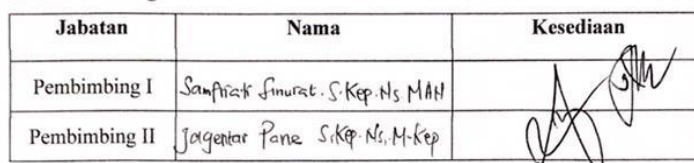 Jabatan Nama Kesediaan
Pembimbing I Samfriati Sinurat. S.Kep. Ns MAN
Pembimbing II Jagentar Pane S.Kep. Ns, M.Kep